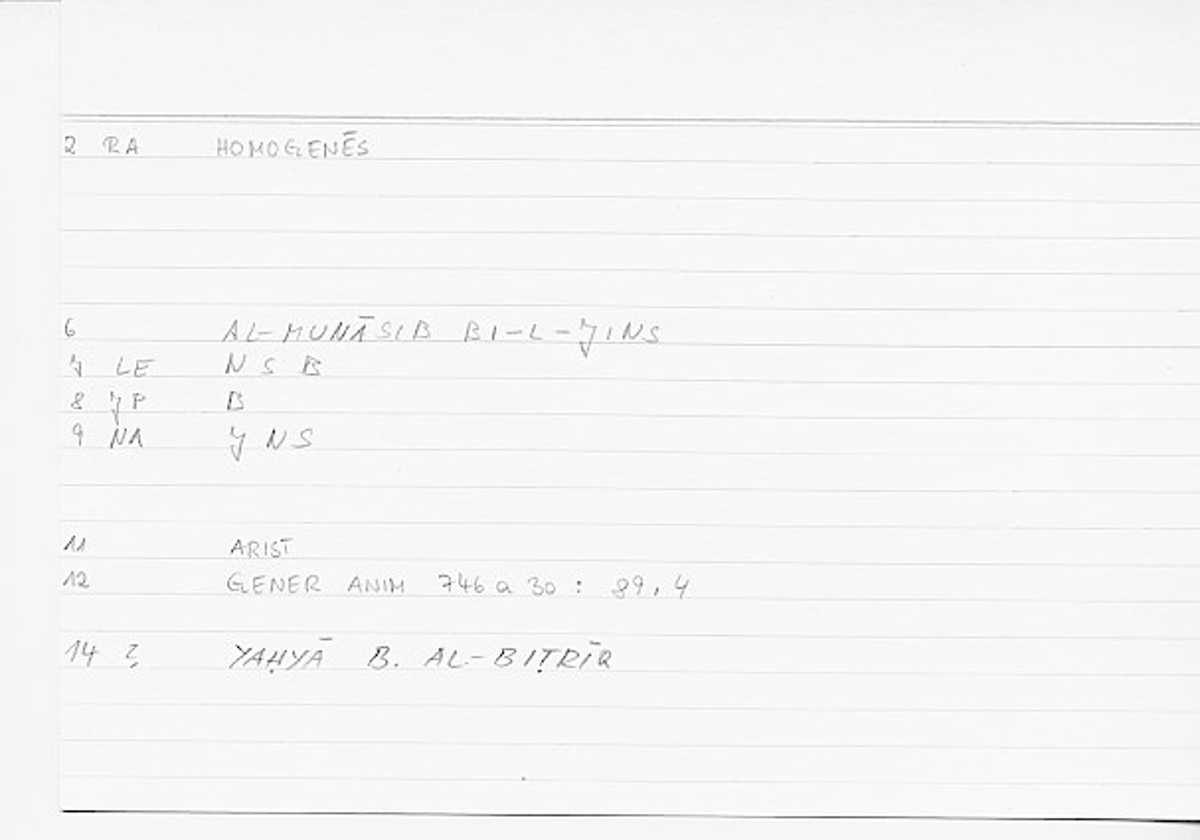 2 RA HOMOGENĒS
6 AL-MUNĀSIB BI-L-JINS
7 LE N S B
8 JP B
9 NA J NS
11 ARIST
12 GENER ANIM 746 a 30 : 89, 4
14 ? YAḤYĀ B. AL-BIṬRĪQ